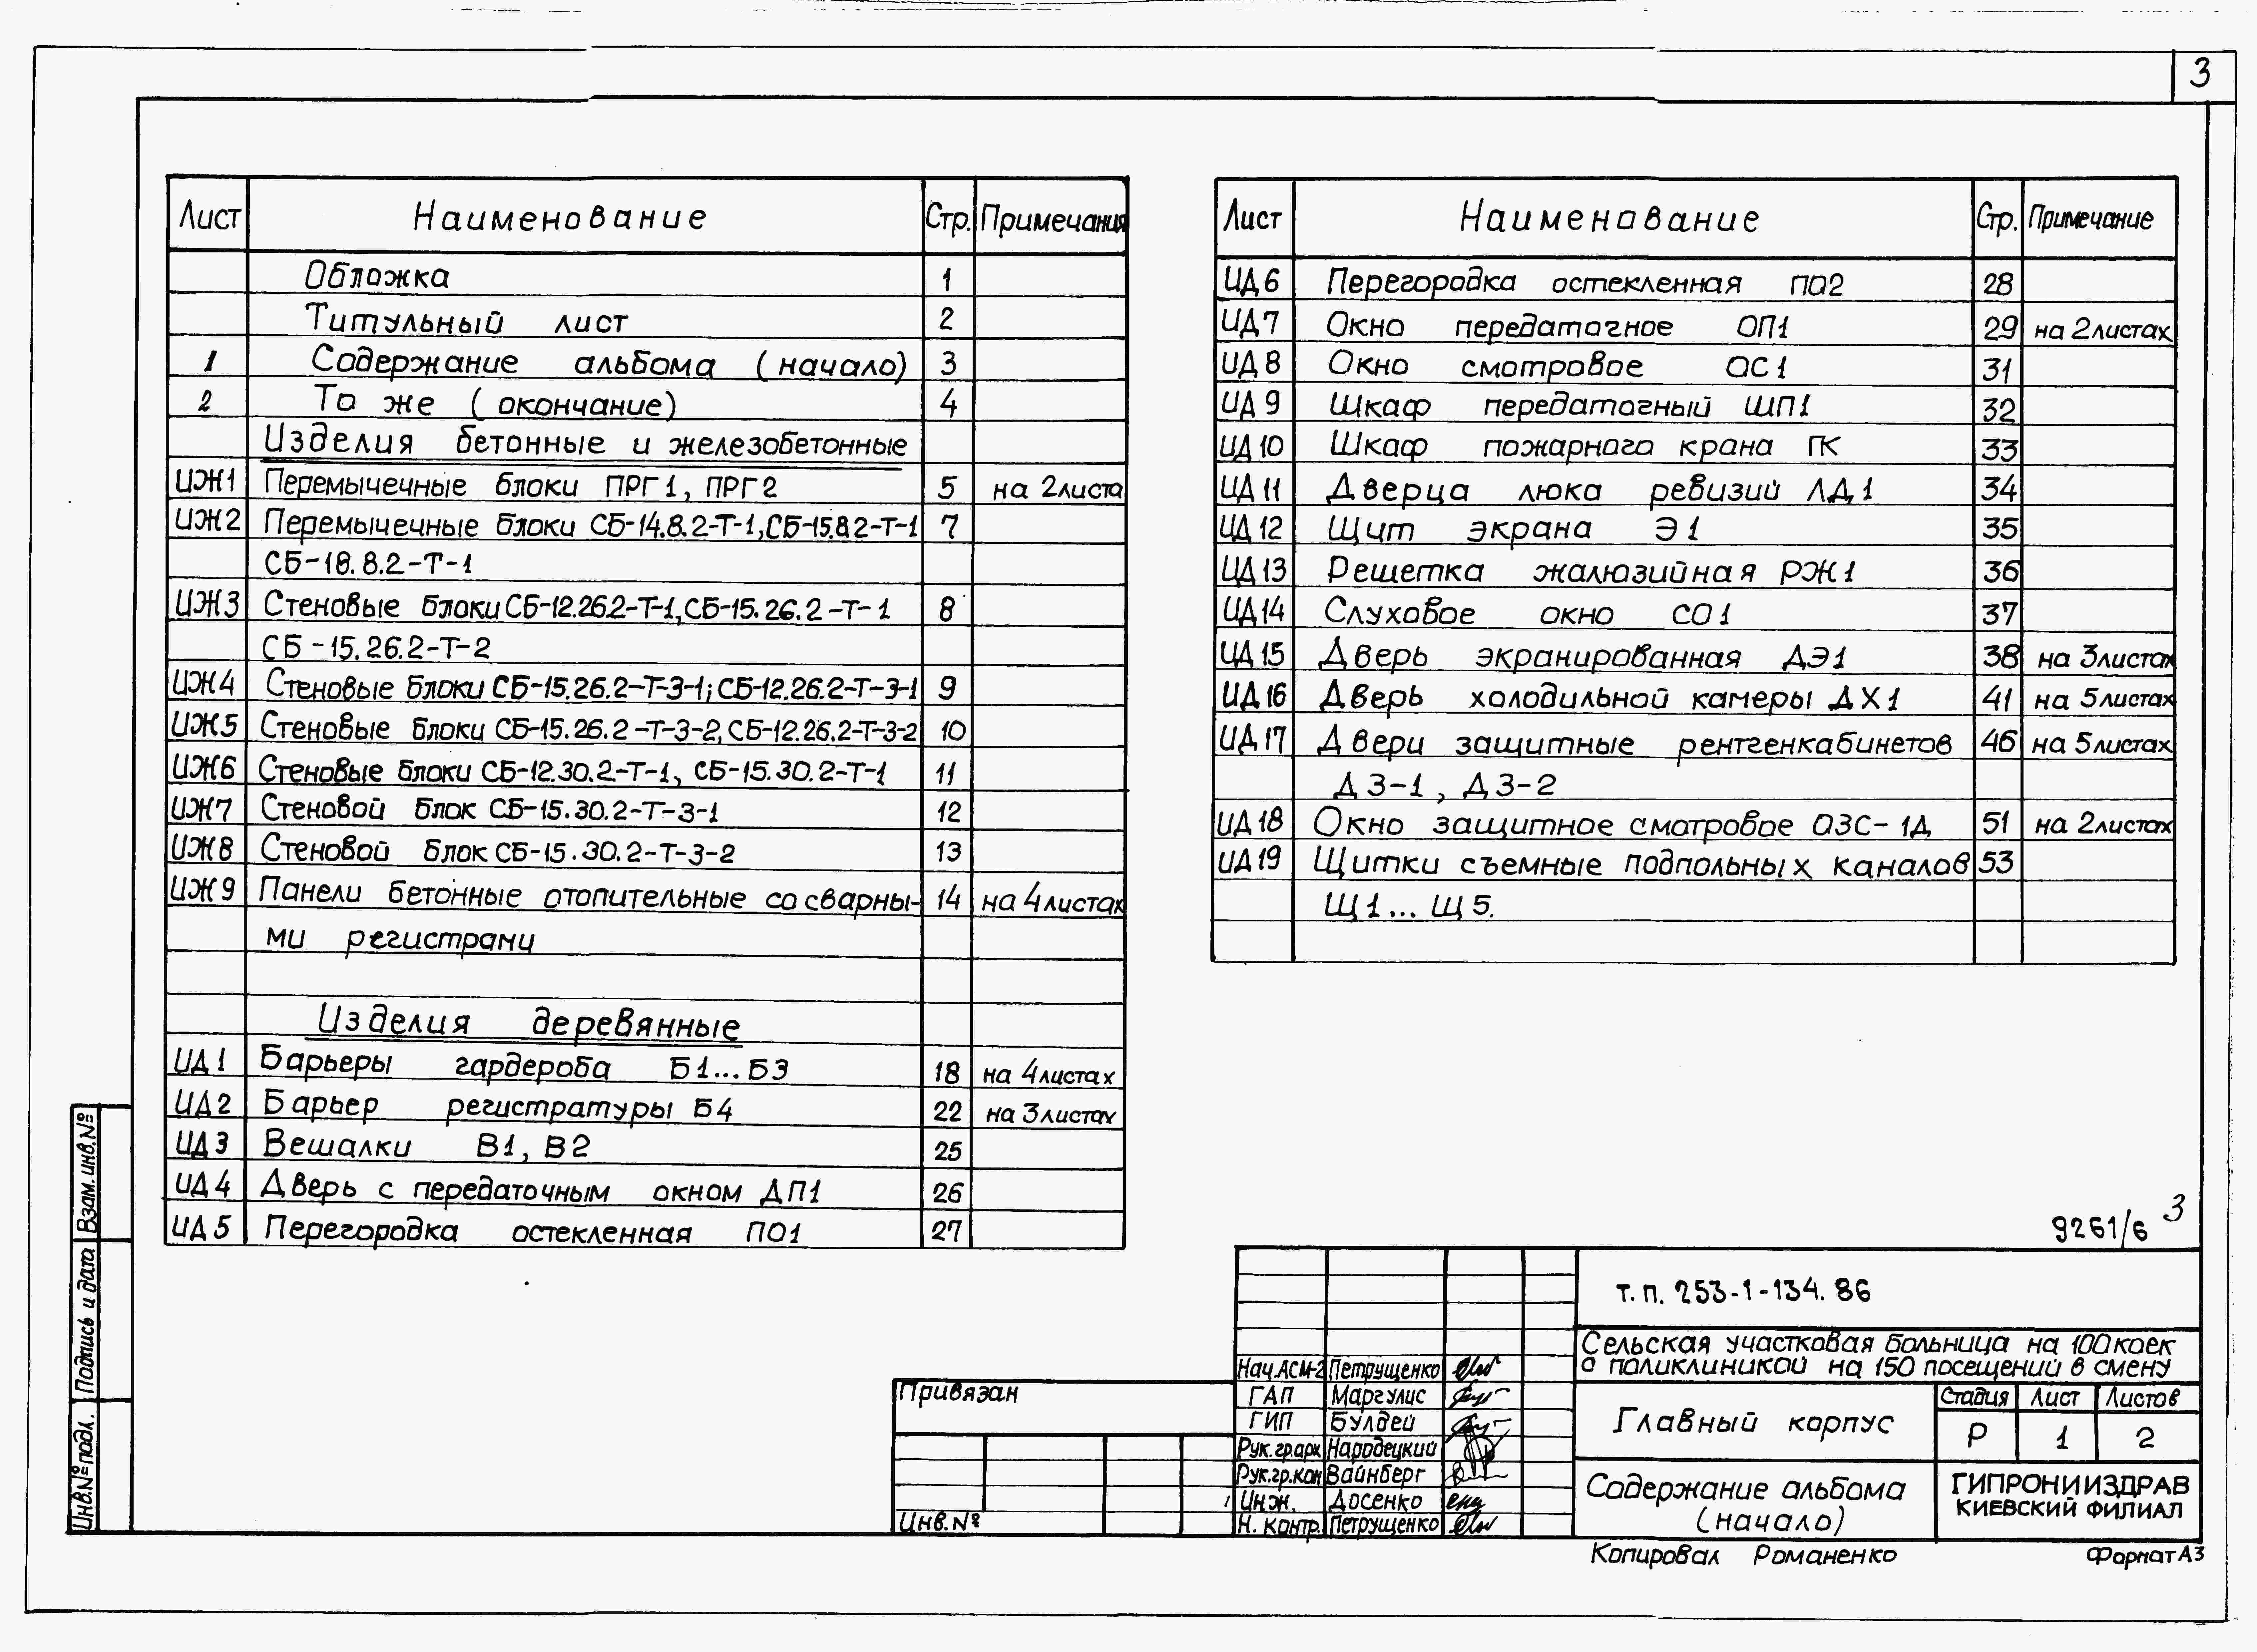 3
Лист Наименование Стр. Примечания
Обложка 1
Титульный лист 2
1 Содержание альбома (начало) 3
2 То же (окончание) 4
Изделия бетонные и железобетонные
ИЖ1 Перемычечные блоки ПРГ1, ПРГ2 5 на 2листа
ИЖ2 Перемычечные блоки СБ-14.8.2-Т-1, СБ-15.8.2-Т-1 7
СБ-18.8.2-Т-1
ИЖ3 Стеновые блоки СБ-12.26.2-Т-1, СБ-15.26.2-Т-1 8
СБ-15.26.2-Т-2
ИЖ4 Стеновые блоки СБ-15.26.2-Т-3-1; СБ-12.26.2-Т-3-1 9
ИЖ5 Стеновые блоки СБ-15.26.2-Т-3-2, СБ-12.26.2-Т-3-2 10
ИЖ6 Стеновые блоки СБ-12.30.2-Т-1, СБ-15.30.2-Т-1 11
ИЖ7 Стеновой блок СБ-15.30.2-Т-3-1 12
ИЖ8 Стеновой блок СБ-15.30.2-Т-3-2 13
ИЖ9 Панели бетонные отопительные со сварны- 14 на 4листах
ми регистрами
Изделия деревянные
ИД1 Барьеры гардероба Б1...Б3 18 на 4листах
ИД2 Барьер регистратуры Б4 22 на 3листах
ИД3 Вешалки В1, В2 25
ИД4 Дверь с передаточным окном ДП1 26
ИД5 Перегородка остекленная ПО1 27
Лист Наименование Стр. Примечание
ИД6 Перегородка остекленная ПО2 28
ИД7 Окно передаточное ОП1 29 на 2листах
ИД8 Окно смотровое ОС1 31
ИД9 Шкаф передаточный ШП1 32
ИД10 Шкаф пожарного крана ПК 33
ИД11 Дверца люка ревизий ЛД1 34
ИД12 Щит экрана Э1 35
ИД13 Решетка жалюзийная РЖ1 36
ИД14 Слуховое окно СО1 37
ИД15 Дверь экранированная ДЭ1 38 на 3листах
ИД16 Дверь холодильной камеры ДХ1 41 на 5листах
ИД17 Двери защитные рентгенкабинетов 46 на 5листах
ДЗ-1, ДЗ-2
ИД18 Окно защитное смотровое ОЗС-1Д 51 на 2листах
ИД19 Щитки съемные подпольных каналов 53
Щ1... Щ5.
9261/6 3
т.п. 253-1-134.86
Сельская участковая больница на 100 коек
с поликлиникой на 150 посещений в смену
Нач.АСМ-2 Петрущенко
ГАП Маргулис
ГИП Булдей
Рук.гр.арх Народецкий
Рук.гр.кон Вайнберг
Инж. Досенко
Н. контр. Петрущенко
Главный корпус
Стадия Лист Листов
Р 1 2
Содержание альбома
(начало)
ГИПРОНИИЗДРАВ
КИЕВСКИЙ ФИЛИАЛ
Привязан
Инв.№
Копировал Романенко
Формат А3
Взам.инв.№
Подпись и дата
Инв.№подл.